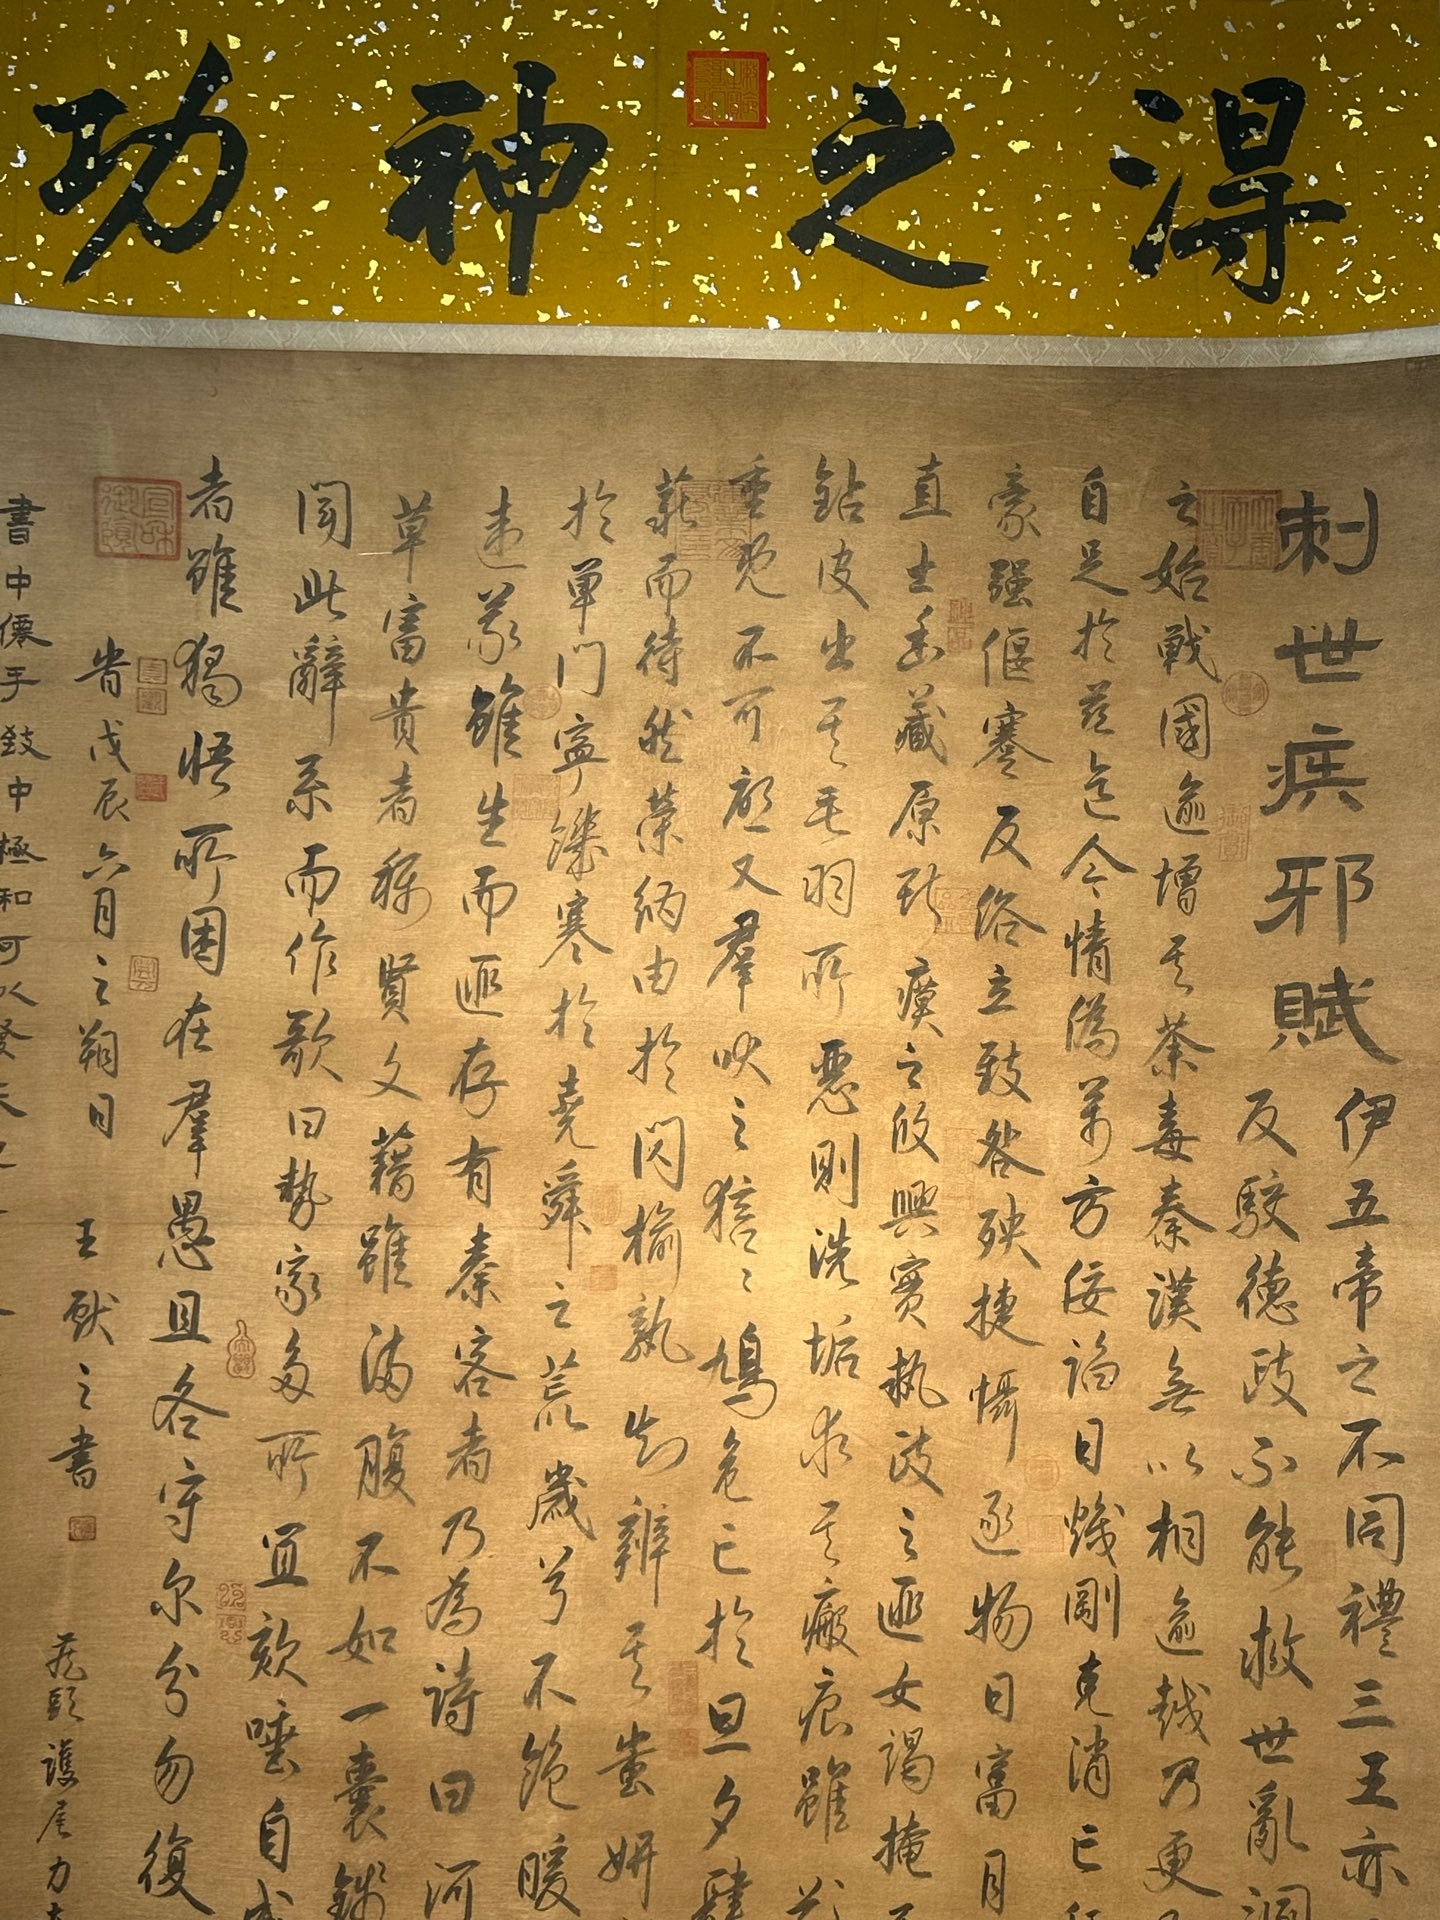 淂之神功
刺世疾邪賦
伊五帝之不同禮三王亦
反駮德政不能救世亂
之始戰國逾增其荼毒秦漢無以相逾越乃更
自足於茲迄今情偽萬方佞諂日熾剛克消亡
豪强偃蹇反俗立致咎殃捷懾逐物日富月
直士幽藏原斯瘼之攸興實執政之匪女謁掩
鉆皮出其毛羽所惡則洗垢求其瘢痕雖
不可啟又羣吠之狺〻鳩危亡於旦夕肆
薪而待然榮納由於閃榆孰知辨其蚩妍
於單門寧饑寒於堯舜之荒歲兮不飽暖
違義雖生而匪存有秦客者乃為詩曰河
草富貴者稱賢文籍雖滿腹不如一囊錢
聞此辭系而作歌曰勢家多所宜欬唾自成
者雖獨悟所困在羣愚且各守尔分勿復
昔戊辰六月之朔日 王獻之書
頭護尾力
書中僊手致中極和可以發天